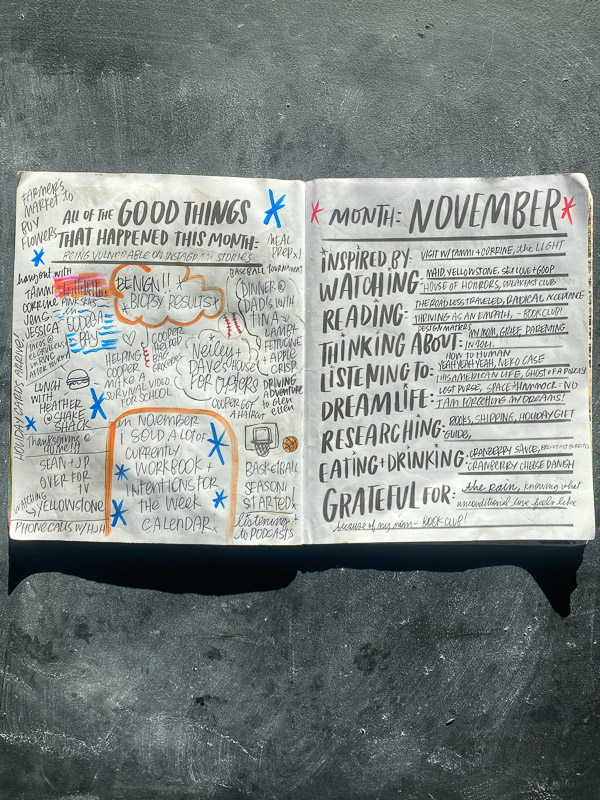 FARMER'S
MARKET to
BUY
FLOWERS
ALL OF THE GOOD THINGS
THAT HAPPENED THIS MONTH:
BEING VULNERABLE ON INSTAGRAM STORIES
MEAL
PREP x1
hangout WITH
TAMMI
CORRINE
JENS
JESSICA
PINK SKIES
in
BODEGA
BAY
HOLIDAY CARDS ARRIVE!
BENIGN!!
BIOPSY RESULTS
BASEBALL TOURNAMENT
DINNER @
DAD'S WITH
TINA
LAMB
FETTUCINE
+ APPLE
CRISP
HELPING
COOPER
MAKE A
SURVIVAL VIDEO
FOR SCHOOL
COOPER
HELPED
BAG
GROCERIES
Nelley +
DAVE'S HOUSE
FOR OYSTERS
COOPER GOT
A HAIRCUT
DRIVING
ADVENTURE
to GLEN
ELLEN
LUNCH
WITH
HEATHER
@ SHAKE
SHACK
Thanksgiving @
HOME!!!
SEAN + JP
OVER FOR
TV
WATCHING
YELLOWSTONE
PHONE CALLS W/HJH
in NOVEMBER
I SOLD A LOT of
CURRENTLY
WORKBOOK +
INTENTIONS FOR
the WEEK
CALENDAR
BASKETBALL
SEASON
STARTED
listening
to PODCASTS
MONTH: NOVEMBER
INSPIRED BY: VISIT W/TAMMI + CORRINE, the LIGHT
WATCHING: MAID, YELLOWSTONE, SEX LOVE + GOOP
HOUSE OF HORRORS, BREAKFAST CLUB
READING: THE ROAD LESS TRAVELED, RADICAL ACCEPTANCE
THRIVING AS AN EMPATH, - BOOK CLUB!
THINKING ABOUT: DESIGN MATTERS MY MOM, GRIEF, PARENTING
IN 2021.
LISTENING TO: HOW TO HUMAN
YEAH YEAH YEAH, NEKO CASE
THIS AMERICAN LIFE, GHOST OF A PODCAST
DREAMLIFE: LOST PURSE, SPACE HAMMOCK - NO
I AM FORGETTING MY DREAMS!
RESEARCHING: BOOKS, SHIPPING, HOLIDAY GIFT
GUIDE,
EATING + DRINKING: CRANBERRY SAUCE, BREAKFAST BURRITOS
CRANBERRY CHEESE DANISH
GRATEFUL FOR: the RAIN, knowing what
unconditional love feels like
because of my mom - BOOK CLUB!